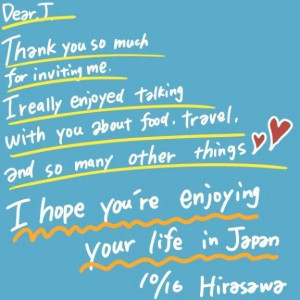 Dear.J
Thank you so much
for inviting me.
I really enjoyed talking
with you about food. travel.
and so many other things
I hope you're enjoying
your life in Japan
10/16 Hirasawa